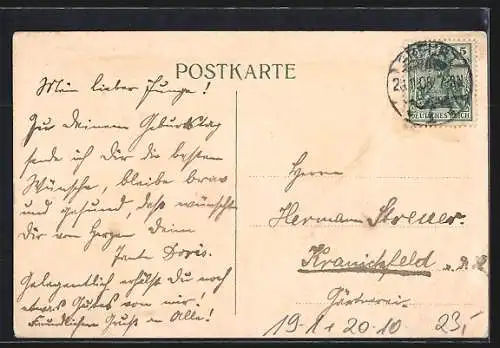 POSTKARTE
Mein lieber Junge!
Zur Deinem Geburtstag
sende ich Dir die besten
Wünsche, bleibe brav
und gesund, daß wünscht
Dir von Herzen Deine
Tante Doris.
Gelegentlich erhälst Du noch
etwas Gutes von mir!
Freundlichen Gruß an Alle!
5
DEUTSCHES REICH
Herrn
Hermann Streuer.
Kranichfeld
Gärtnerei
19-1+20-10 23,-